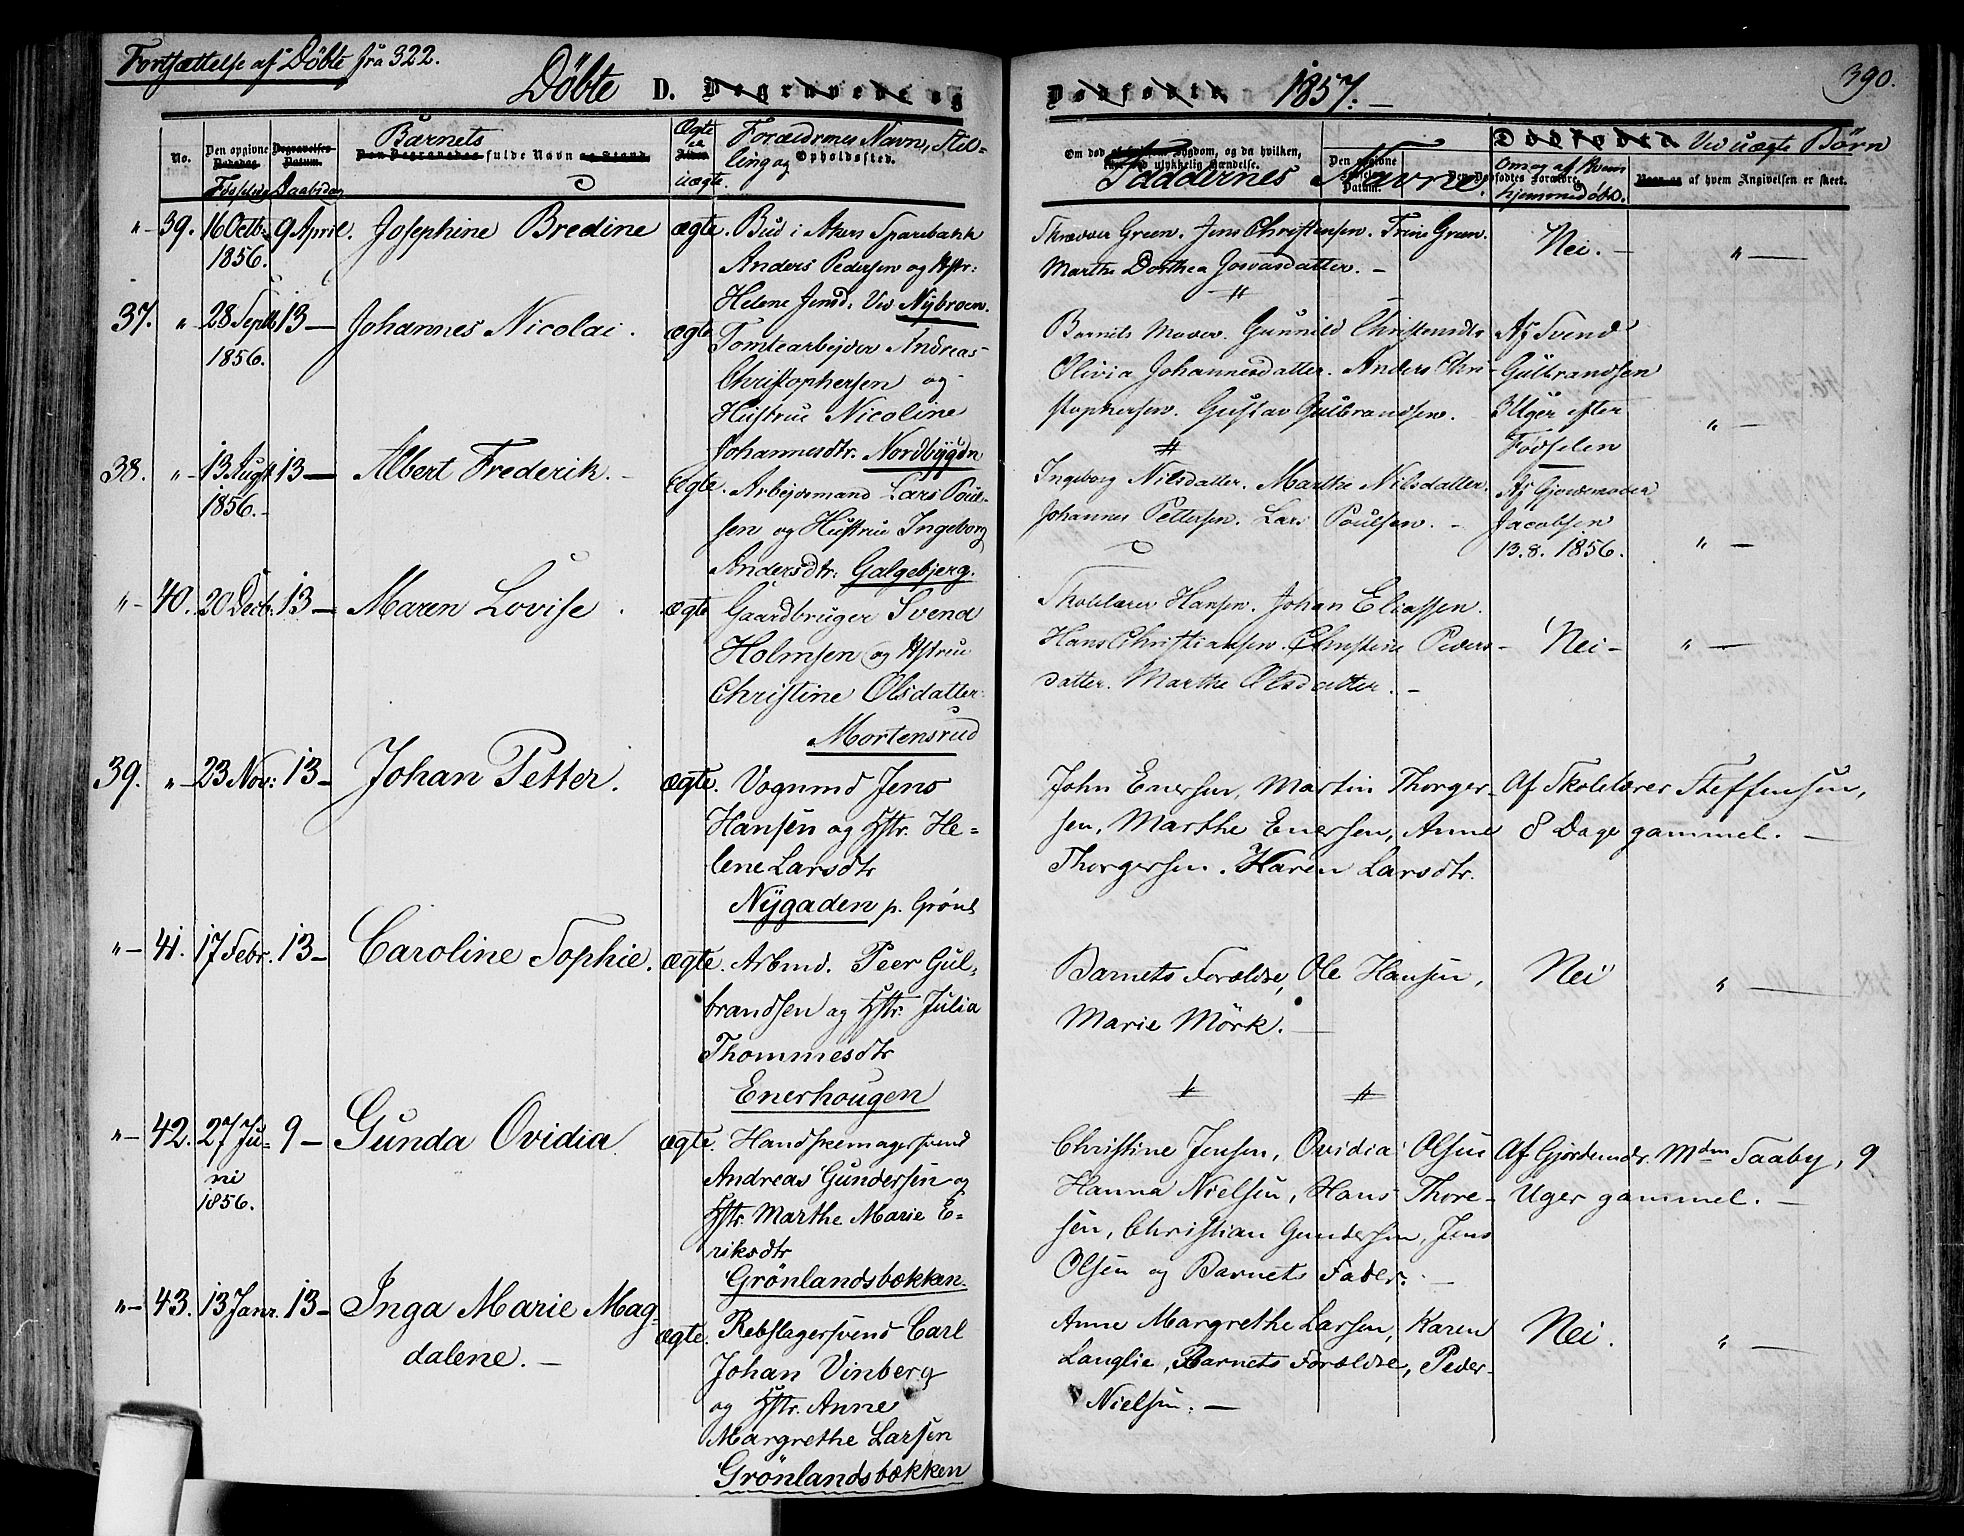 Fortsættelse af Döbte fra 322.
Döbte D. Begravede og
Dödfödte 1857. —
390.
No.
Den opgivne Dødsdag.
Fødselsdag
Begravelses-Datum.
Daabsdag
Barnets
Den Begravedes fulde Navn og Stand.
Ægte
Alder
Uægte.
Forældrenes Navn, Stil-
ling og Opholdssted.
Faddernes Navne.
Dødfödte Ved uægte Børn
Om og af hvem
hjemmedøbt.
Navn og af hvem Angivelsen er skeet.
"— 39. 16 Octb. 9 April. Josephine Bredine ægte. Bud i Akers Sparebank
1856.
Anders Pedersen og Hstr:
Helene Jensd: Ved Nybroen.
Skræder Green. Jens Christensen. Trine Green.
Marthe Dorthea Josvasdatter. —
Nei. —
" —
37. " 28 Septb 13 — Johannes Nicolai. ægte Tomtearbejder Andreas
1856.
Christophersen og
Hustrue Nicoline
Johannesdtr. Nordbygdn
Barnets Moder. Gunnild Christensdtr
Olivia Johannesdatter. Anders Chri-
stophersen. Gustav Gulbrandsen.
Af Svend
Gulbrandsen
3 Uger efter
Fødselen
" —
38. "— 13 Augst 13 — Albert Frederik. — ægte. Arbejdsmand Lars Poul-
1856. —
sen og Hustrue Ingeborg
Andersdtr: Galgebjerg.
Ingeborg Nilsdatter. Marthe Nilsdatter.
Johannes Pettersen. Lars Poulsen. —
Af Gjordemoder
Jacobsen
13.8. 1856.
" —
"— 40. 20 Decb. 13 — Maren Lovise. ægte Gaardbruger Svend
Holmsen og Hstrue
Christine Olsdatter
Mortensrud
Skolelærer Hansen. Johan Eliassen.
Hans Christiansen. Christine Peders-
datter. Marthe Olsdatter. —
Nei —
" —
39. "— 23 Nov: 13 — Johan Petter. ægte. Vognmd Jens
Hansen og Hstr. He-
lene Larsdtr
Nygaden p. Grönl
John Enersen, Martin Thorger-
sen, Marthe Enersen, Anne
Thorgersen. Karen Larsdtr.
Af Skolelærer Steffensen,
8 Dage gammel. —
"— 41. 17 Febr. 13 — Caroline Sophie. ægte. Arbmd. Peer Gul-
brandsen og Hstr. Julia
Thommesdtr
Enerhougen
Barnets Forældre, Ole Hansen,
Marie Mörk. —
Nei
" —
"— 42. 27 Ju- 9 — Gunda Ovidia ægte. Handskemagersvend
ni
1856.
Andreas Gundersen og
Hstr. Marthe Marie E-
riksdtr
Grönlandsbækken.
Christine Jensen, Ovidia Olsen
Hanna Nielsen, Hans Thore-
sen, Christian Gundersen, Jens
Olsen og Barnets Fader. —
Af Gjordemdr. Mdm Saaby, 9
Uger gammel. —
"— 43. 13 Janr. 13 — Inga Marie Mag-
dalene. —
ægte. Rebslagersvend Carl
Johan Vinberg
og Hstr. Anne
Margrethe Larsen
Grönlandsbækken
Anne Margrethe Larsen, Karen
Langlie, Barnets Forældre, Peder
Nielsen. —
Nei.
" —